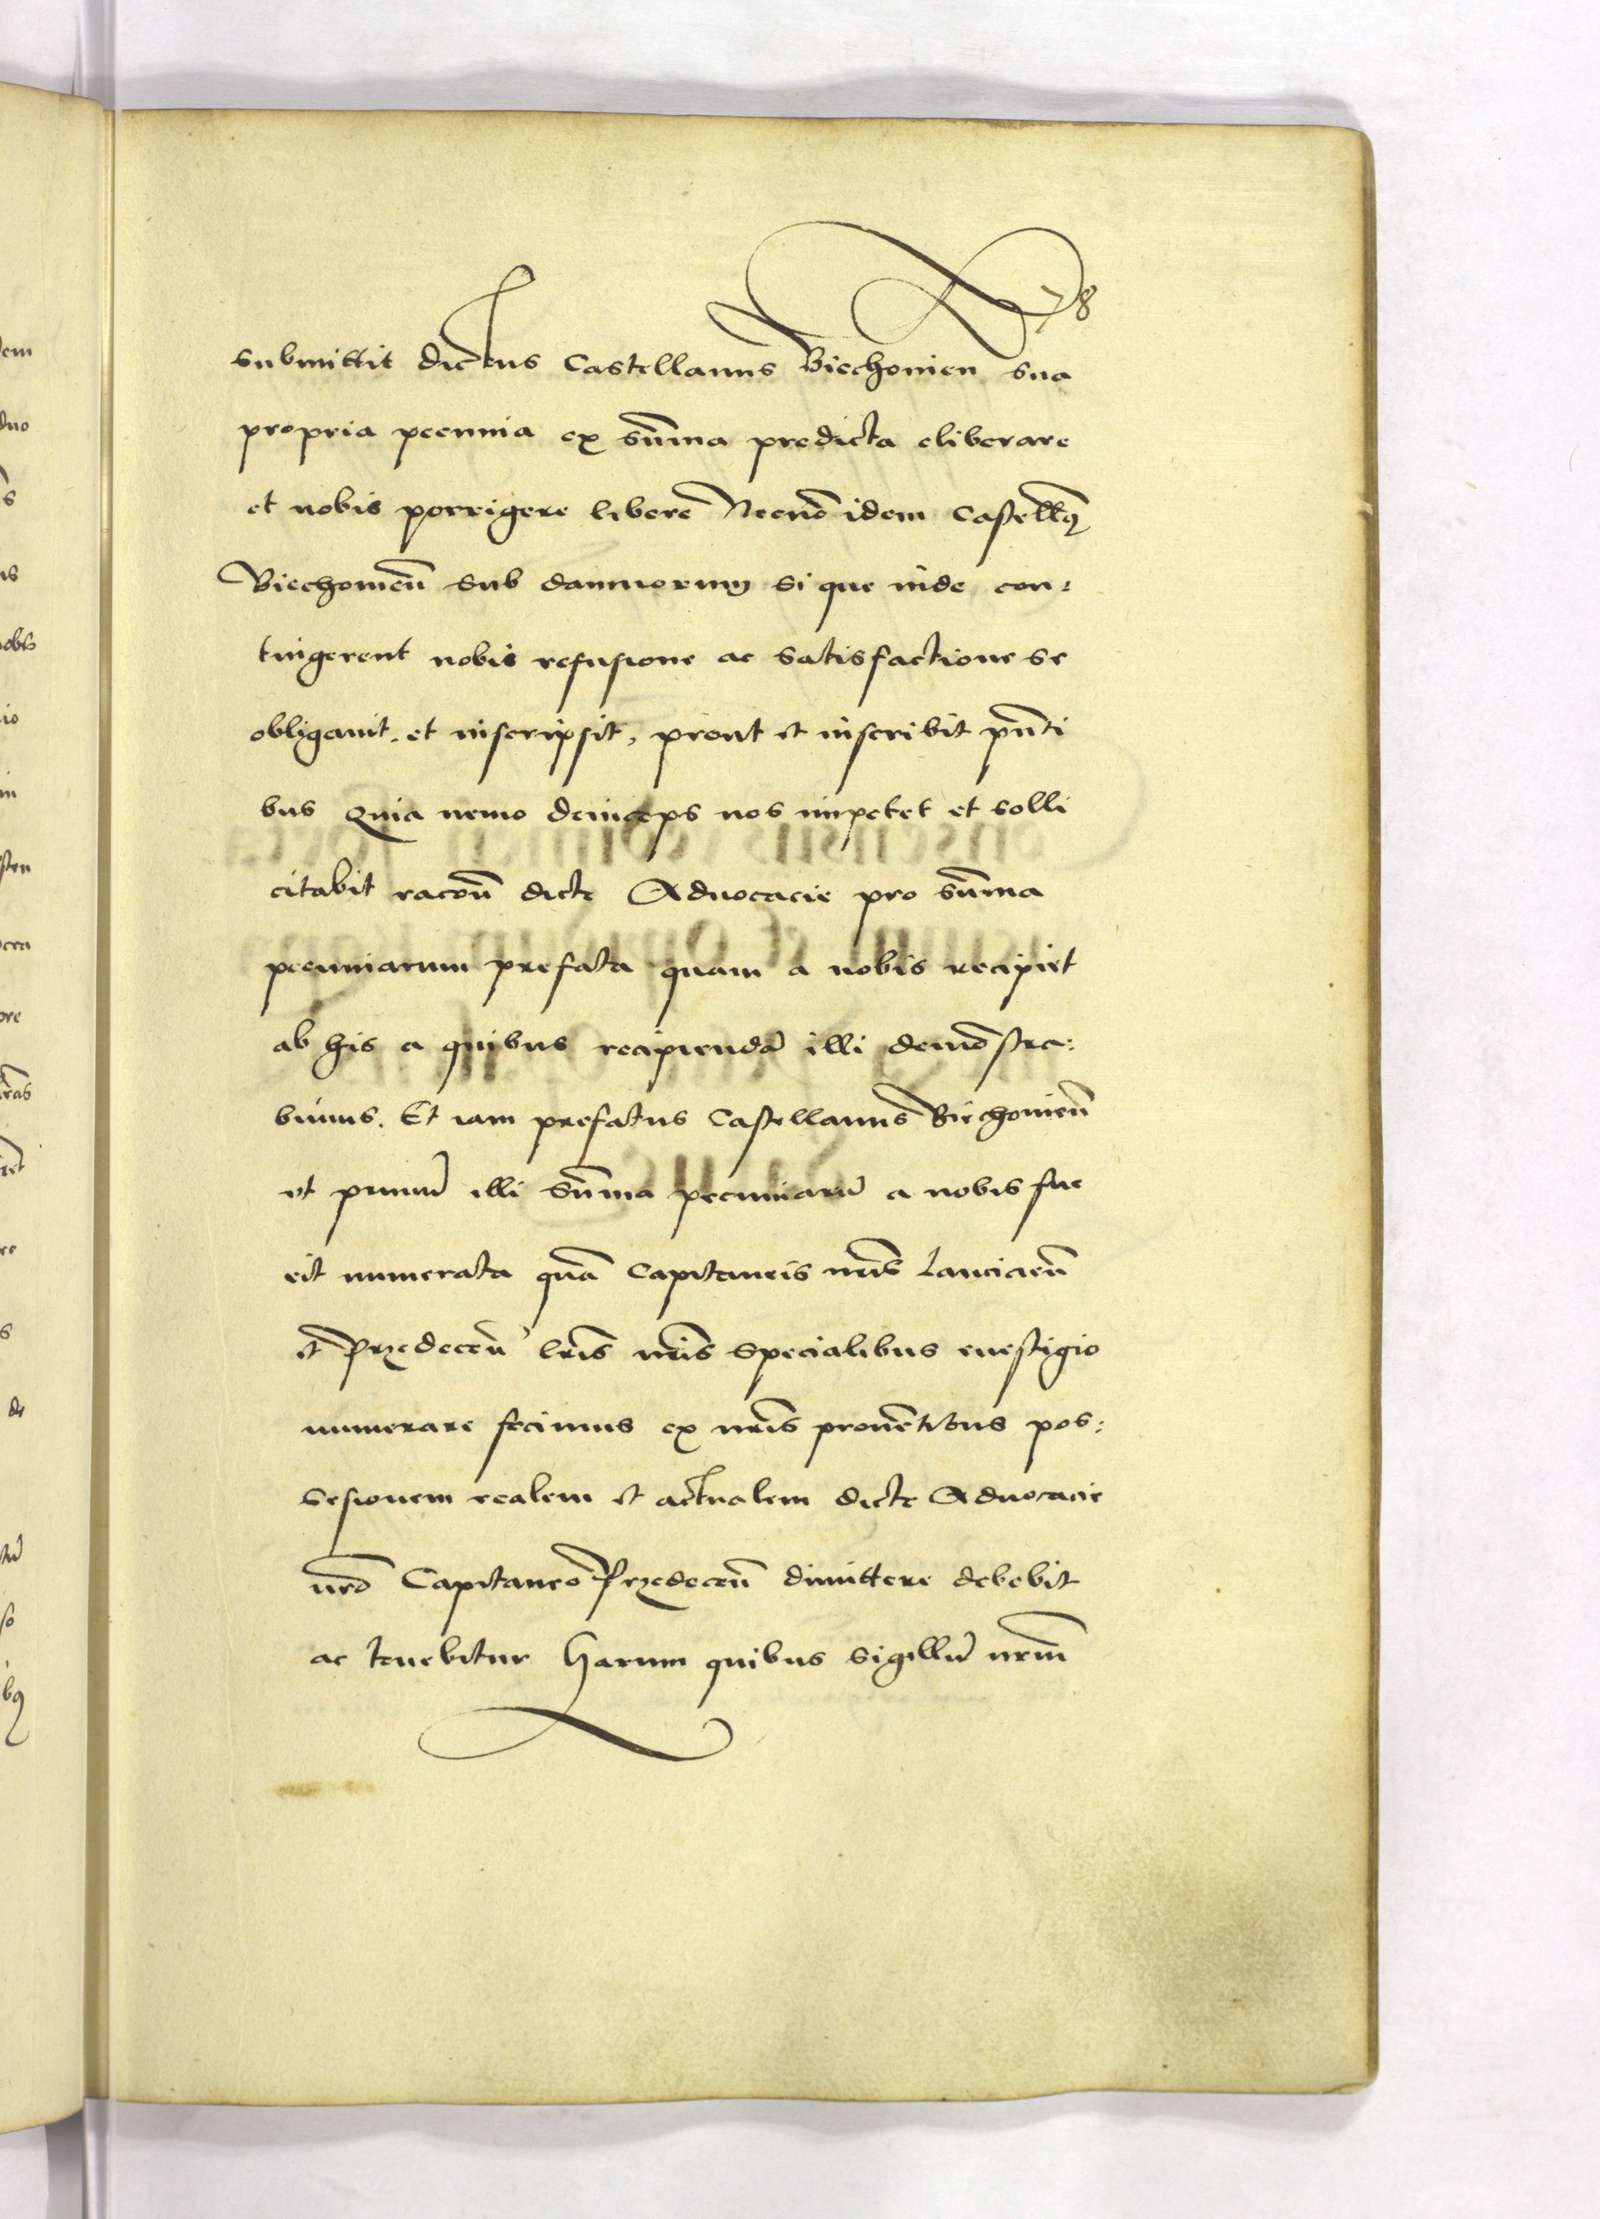 78
submittit dictus Castellanus Biechonien sua
propria pecunia ex sum̄ma predicta eliberare
et nobis porrigere liberē Necnō idem Castellꝰ
Biechonieñ sub damnorum si que inde con:
tingerent nobis refusione ac satisfactione se
obligauit. et inscripsit, prout et inscribit pñti
bus Quia nemo deinceps nos impetet et solli
citabit racoñ dicte Aduocacie pro sum̄ma
pecuniarum prefata quam a nobis recipiet
ab his a quibus recipiendā illi demōstra:
bimus. Et iam prefatus Castellanus Biechonieñ
vt primū illi sum̄ma pecuniarū a nobis fue
rit numerata quā Capitaneis nr̄is Lancicieñ
et Przedeceñ lr̄is nr̄is specialibus euestigio
numerare fecimus ex nr̄is prouētibus pos:
sesionem realem et actualem dicte Aduocacie
nr̄o Capitaneo Przedeceñ dimittere debebit
ac tenebitur Harum quibus sigillū nr̄um